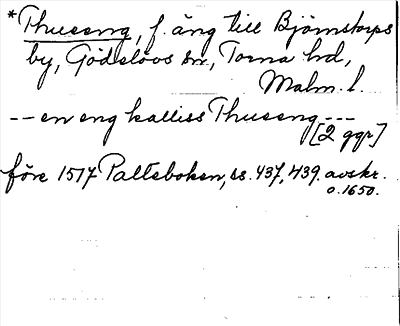 *Thuseng, f. äng till Björnstorps
by, Gödelövs sn, Torna hd,
Malm. l.
-- en eng kalliss Thuseng ---
[2 ggr]
före 1517 Palteboken, ss. 437, 439. avskr.
o. 1650.